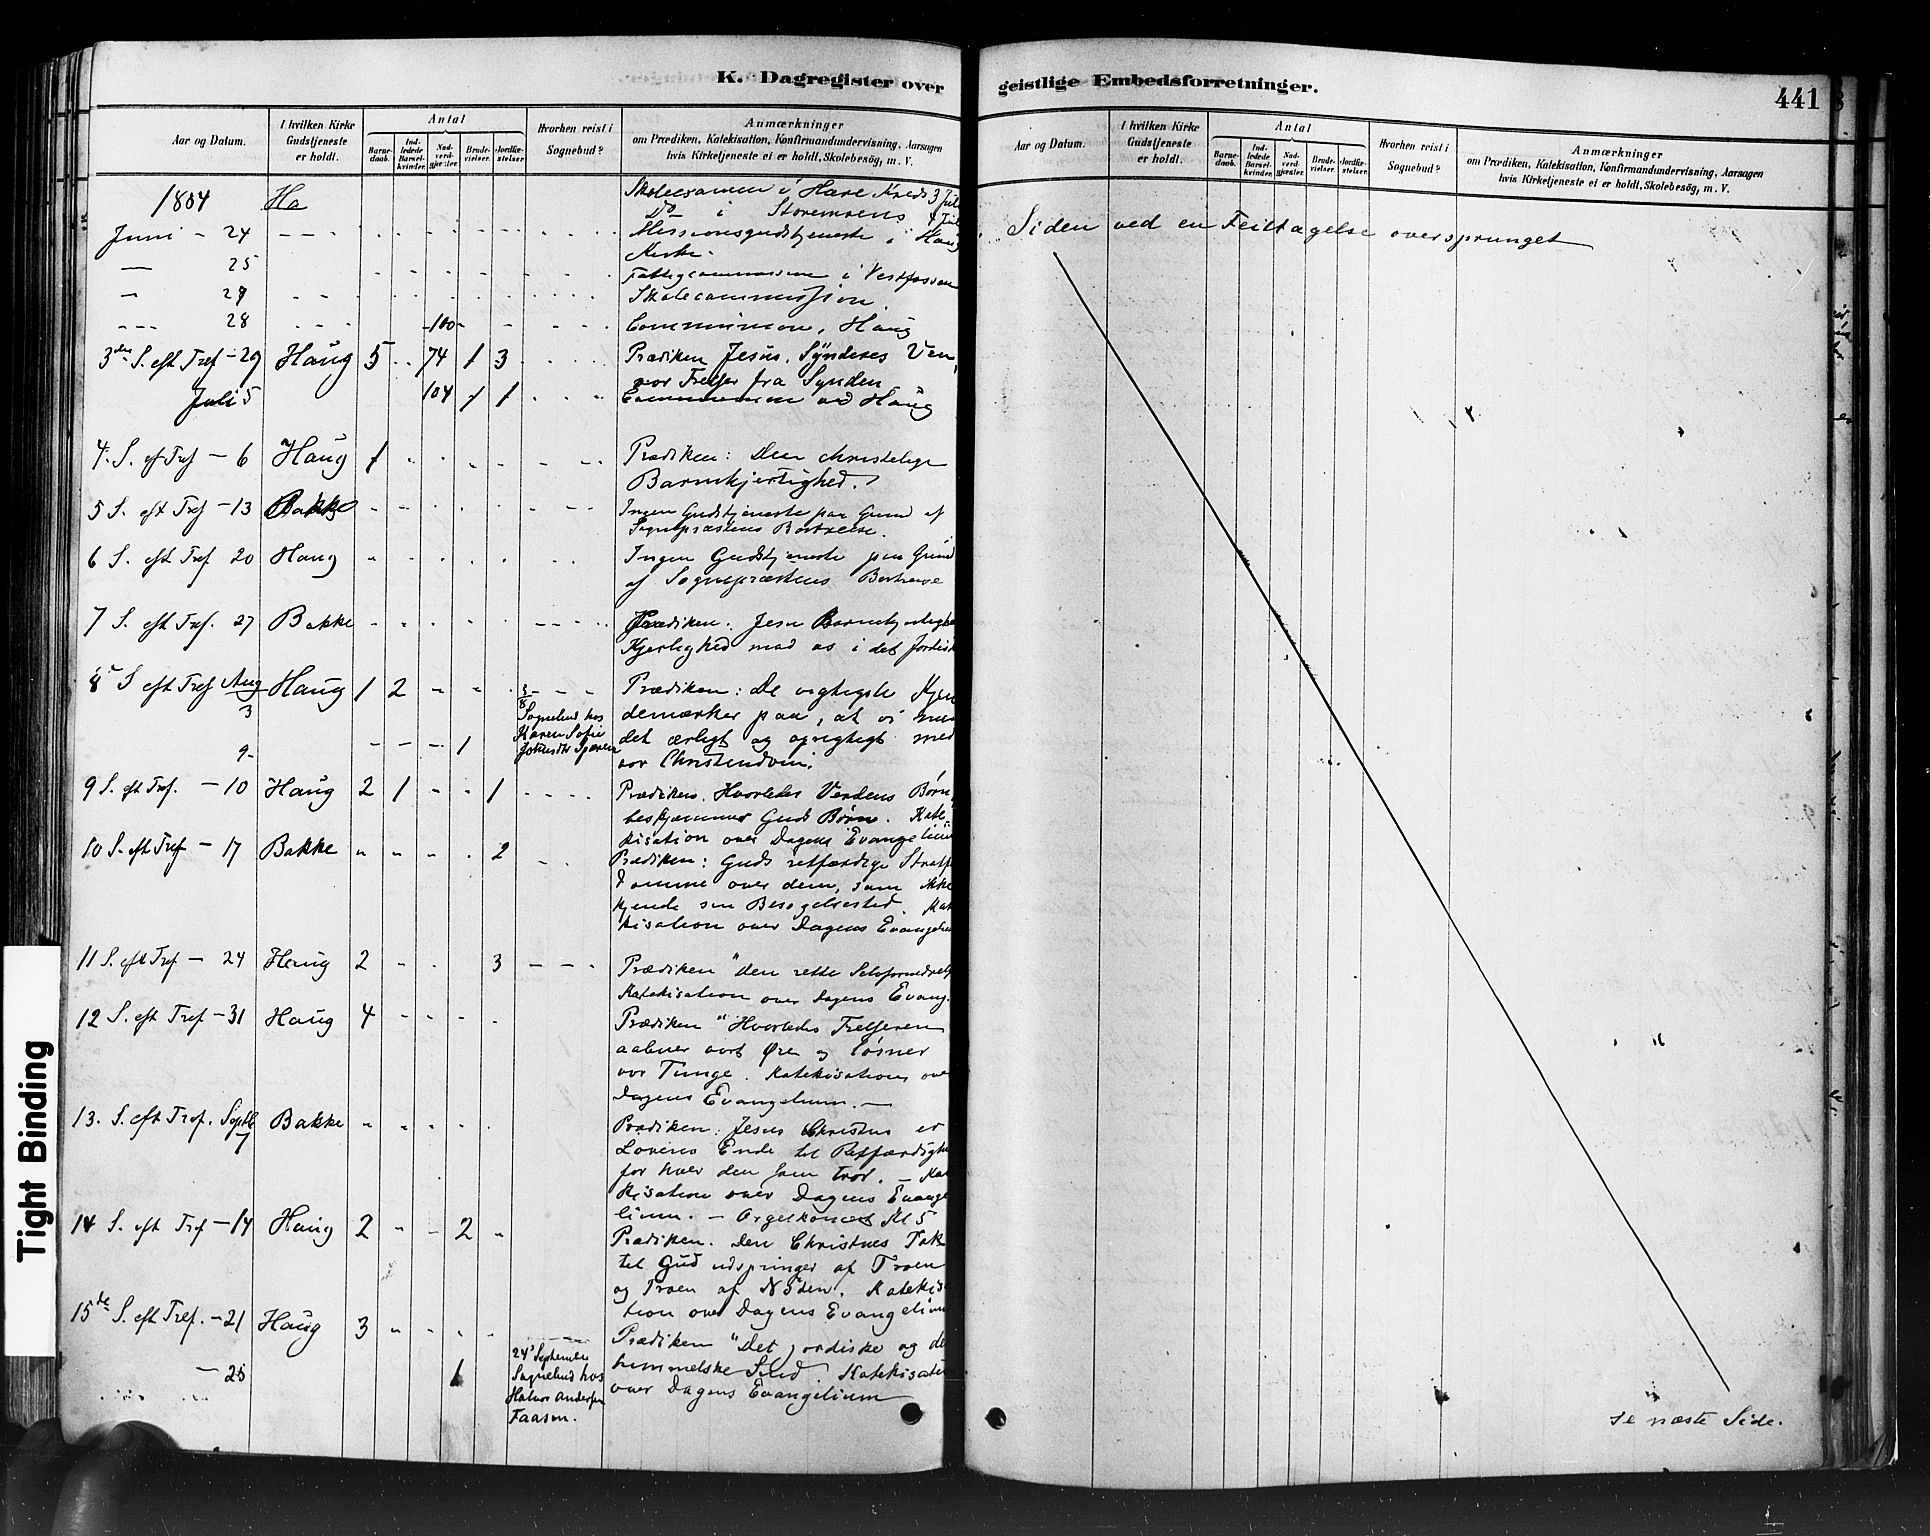 K. Dagregister over
Aar og Datum.
I hvilken Kirke Gudstjeneste er holdt.
Antal
Barnedaab.
Indledede Barselkvinder.
Nadverdgjæster.
Brudevielser.
Jordfæstelser
Hvorhen reist i Sognebud?
Anmærkninger
om Prædiken, Katekisation, Konfirmandundervisning, Aarsagen
hvis Kirketjeneste ei er holdt, Skolebesøg, m. V.
1884 Ha Skoleexamen i Hare Kreds 3 Juli
Do i Storemoens 4 Juli
Juni - 24 Missionsgudstjeneste i Haug
Kirke.
— 25 Fattigcommission i Vestfossen
— 27 Skolecommission.
--- 28 -100- Communion, Haug
3die S. eft Tref - 29 Haug 5 74 1 3 Prædiken Jesus. Synderes Ven,
vor Frelser fra Synden
Juli 5 104 1 1 Communion ved Haug
4. S. ef Tref - 6 Haug 1 Prædiken: Den christelige
Barmhjertighed.
5 S. eft Tref - 13 Bakke Ingen Gudstjeneste paa Grund af
Sognepræstens Bortreise.
6 S. eft Tref 20 Haug Ingen Gudstjeneste paa Grund
af Sognepræstens Bortreise
7 S. eft Tref. 27 Bakke Prædiken. Jesu Barmhjertighed
Kjærlighed mod os i det Jordisk
8 S eft Tref Aug 3 Haug 1 2 Prædiken: De vigtigste Kjen
demærker paa, at vi mene
det ærligt og oprigtigt med
vor Christendom.
3/8 Sognebud hos
Karen Sofie
9- 1
9 S. eft Tref. - 10 Haug 2 1 1 Prædiken. Hvorledes Verdens Børn
beskjæmmer Guds Børn. Kate
kisation over Dagens Evangelium
10 S. eft Tref - 17 Bakke 2 Prædiken: Guds retfærdige Straffe
domme over dem, som ikke
kjende sin Besøgelsestid. Kat
kisation over Dagens Evangelium
11 S. eft Tref - 24 Haug 2 3 Prædiken "Den rette Selvfornedrelse
Katekisation over Dagens Evang.
12 S. eft Tref - 31 Haug 4 Prædiken "Hvorledes Frelseren
aabner vort Øre og løsner
vor Tunge. Katekisation over
Dagens Evangelium. —
13. S. eft Tref. Septb 7 Bakke Prædiken: Jesus Christus er
Lovens Ende til Retfærdighed
for hver den som tror. - Kat
kisation over Dagens Evange
lium. - Orgelkoncert Kl 5
14 S. eft Tref - 14 Haug 2 2 Prædiken. Den Christnes Tak
til Gud udspringer af Troen
og Troen af Nøden. Katekisa
tion over Dagens Evangelium
15de S. eft Tref. - 21 Haug 3 Prædiken "Det jordiske og det
himmelske Sind. Katekisation
over Dagens Evangelium
— 25 1
24' Septembr
Sognebud hos
Halvor Andersen
Faasen.
geistlige Embedsforretninger.
441
Aar og Datum.
I hvilken Kirke Gudstjeneste er holdt.
Antal
Barnedaab.
Indledede Barselkvinder.
Nadverdgjæster.
Brudevielser.
Jordfæstelser.
Hvorhen reist i Sognebud?
Anmærkninger
om Prædiken, Katekisation, Konfirmandundervisning, Aarsagen
hvis Kirketjeneste ei er holdt, Skolebesøg, m. V.
Siden ved en Feiltagelse oversprunget
se næste Side.
Tight Binding